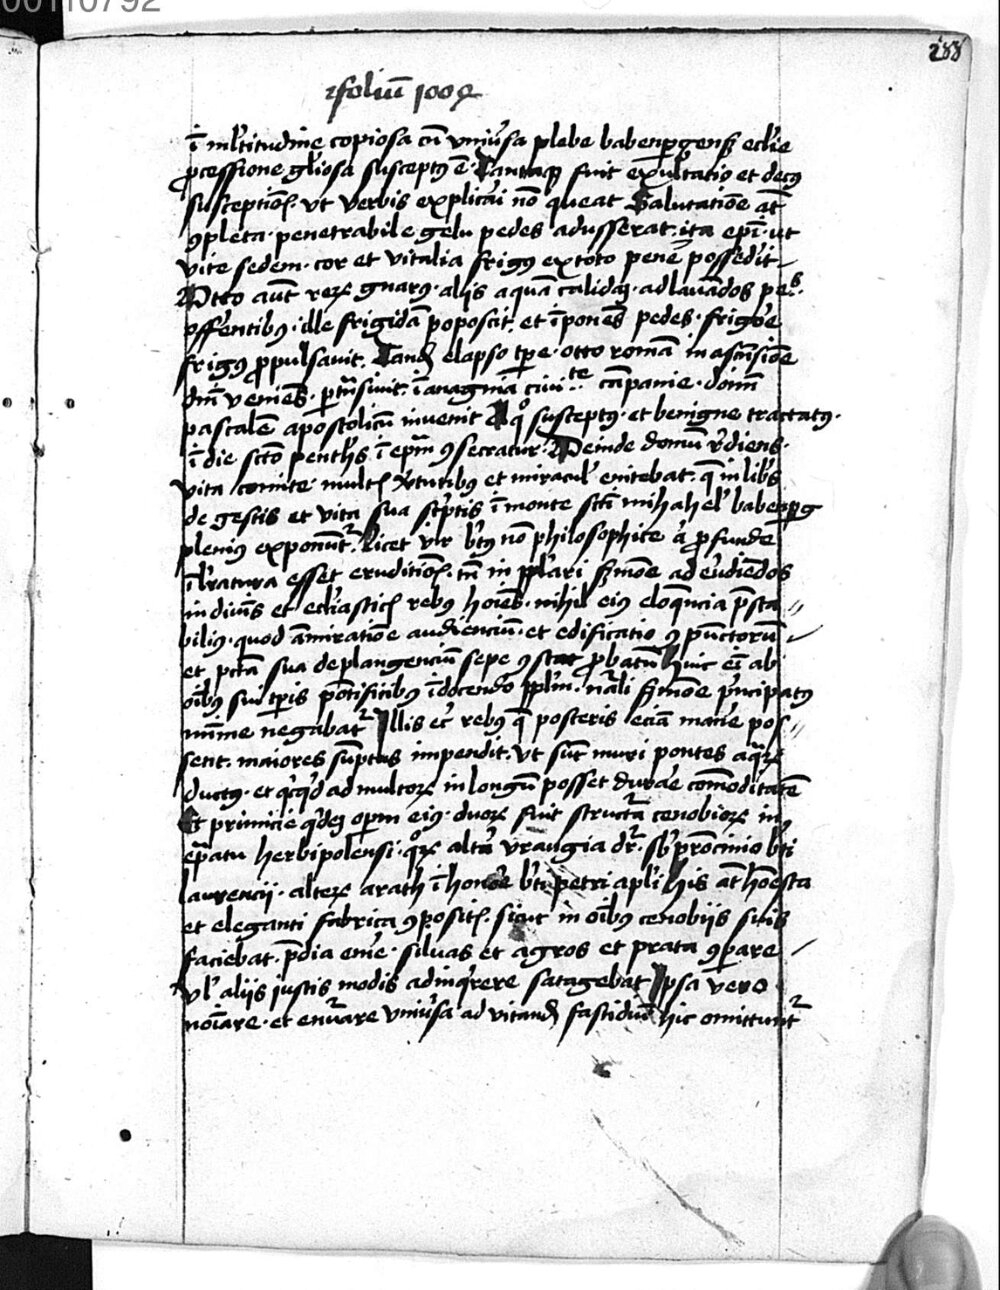 00110792
288
folium 100
ī ml'titudine copiosa cū vniu'sa plebe babenpgenß eclie
pcessione gl'iosa susceptꝰ ē · Tantaqꝫ fuit exultatio et decꝰ
susceptioīs · vt verbis explicāi nō queat Salutatiōe āt
ꝯpleta · penetrabile gelu pedes adusserat · ita epī · ut
vite sedem · cor et vitalia frigꝰ ex toto pene possedit
Otto aūt reꝝ gnarꝰ · aliis aquā calidā · ad lauādos pe
offentibꝰ · ille frigidā poposcit · et īponēs pedes · frigore
frigꝰ ppulsauit · Tandē elapso tpe · otto romā in ascēsiōe
dnī veniēs · ptnsiuit · ī anagniā ciuite cāpanie · doīm
pascalē apostolicū inuenit A qͦ susceptꝰ · et benigne tractatꝰ ·
ī die scto penthꝭs ī epm̄ ꝯsecratur · Deinde domū r'diens ·
vita comite · multꝭ v'tutibꝰ et miracul' enitebat · q̄ in lib'ꝭ
de gestis et vita sua scptis ī monte scti mihahel' babenpg
pleniꝰ exponūt Licet vir btꝰ nō philosophice a pfunde
l'ratura esset eruditioīs · tn̄ in pplari sꝫmōe ad erudiēdos
in diuīs et ecliasticꝭ rebꝰ hoīes · nihil eiꝰ eloq̄ncia p̄sta
biliꝰ · quod āmiratiōe audienciū · et edificatio ꝯpūctorū
et pctā sua deplangenciū sepe ꝯstat pbatū Huic eī ab
oībꝰ sui tpis pōtificibꝰ ī docendo pplm · nāli sꝫmōe p'ncipatꝰ
minime negabat Illis ec' rebꝰ q̄ posteris eciā
sent · maiores sūptus impendit · vt sūt muri pontes aqꝝ
ductꝰ · et qͥcqͥd ad multoꝝ in longū posset durare cōmoditatē
Et primicie qͥdē opm eiꝰ · duoꝝ fuit structa cenobioꝝ in
epatu herbipolensi · qͦꝝ altū vraugia dr · sb' prōcinio bti
laurencij · alteꝝ arath ī honōe bti petri apli His āt hōesta
et eleganti fabrica ꝯpositꝭ · sicut in oībꝰ cenobiis suis
faciebat · p̄dia eme · siluas et agros et prata ꝯpare
vl' aliis iustis modis adinqͥrere satagebat Ipsa vero
noīare · et enūare vniu'sa ad vitandū fastidiū hic omittunt